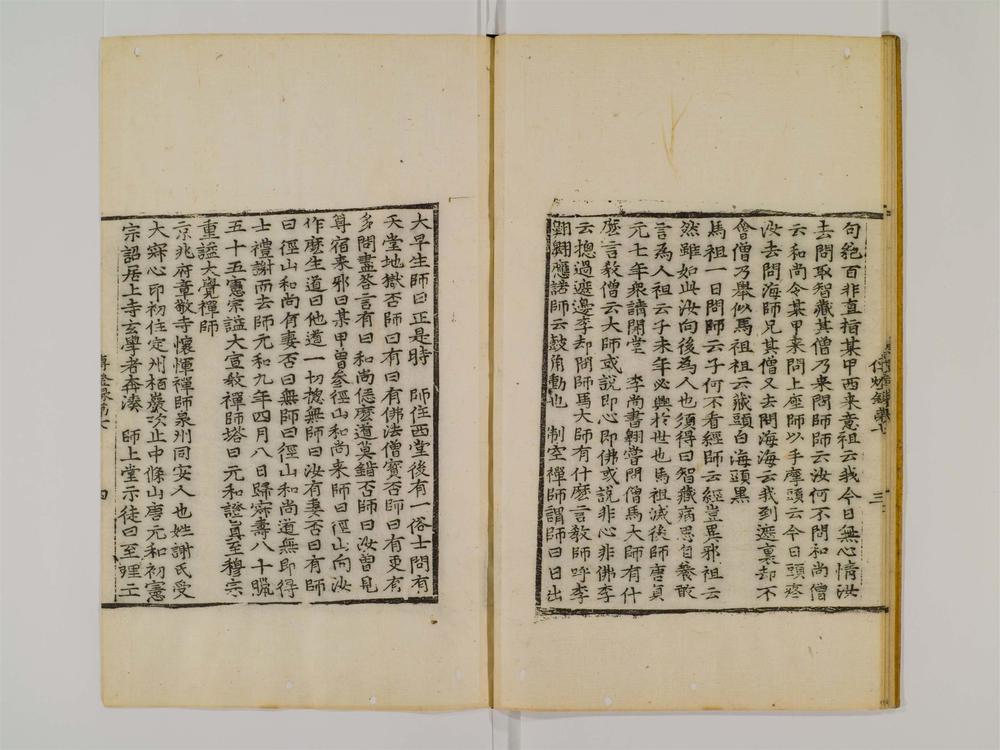 句絶百非直指某甲西来意祖云我今日無心情汝
去問取智藏其僧乃来問師師云汝何不問和尚僧
云和尚令某甲来問上座師以手摩頭云今日頭疼
汝去問海師兄其僧又去問海海云我到遮裏却不
會僧乃舉似馬祖祖云藏頭白海頭黒
馬祖一日問師云子何不看經師云經豈異邪祖云
然雖如此汝向後為人也須得曰智藏病思自養敢
言為人祖云子末年必興於世也馬祖滅後師唐貞
元七年衆請開堂　李尚書翺嘗問僧馬大師有什
麽言教僧云大師或說即心即佛或說非心非佛李
云揔過遮邊李却問師馬大師有什麽言教師呼李
翺翺應諾師云鼓角動也　制空禪師謂師曰日出
傳燈錄第七　三
大早生師曰正是時　師住西堂後有一俗士問有
天堂地獄否師曰有曰有佛法僧寶否師曰有更有
多問盡荅言有曰和尚恁麽道莫錯否師曰汝曾見
尊宿来邪曰某甲曾參徑山和尚来師曰徑山向汝
作麽生道曰他道一切揔無師曰汝有妻否曰有師
曰徑山和尚有妻否曰無師曰徑山和尚道無即得
士禮謝而去師元和九年四月八日歸寂壽八十臘
五十五憲宗謚大宣教禪師塔曰元和證眞至穆宗
重謚大覺禪師
京兆府章敬寺懷惲禪師泉州同安人也姓謝氏受
大寂心印初住定州栢巖次止中條山唐元和初憲
宗詔居上寺玄學者奔湊　師上堂示徒曰至理亡
傳燈錄第七　四